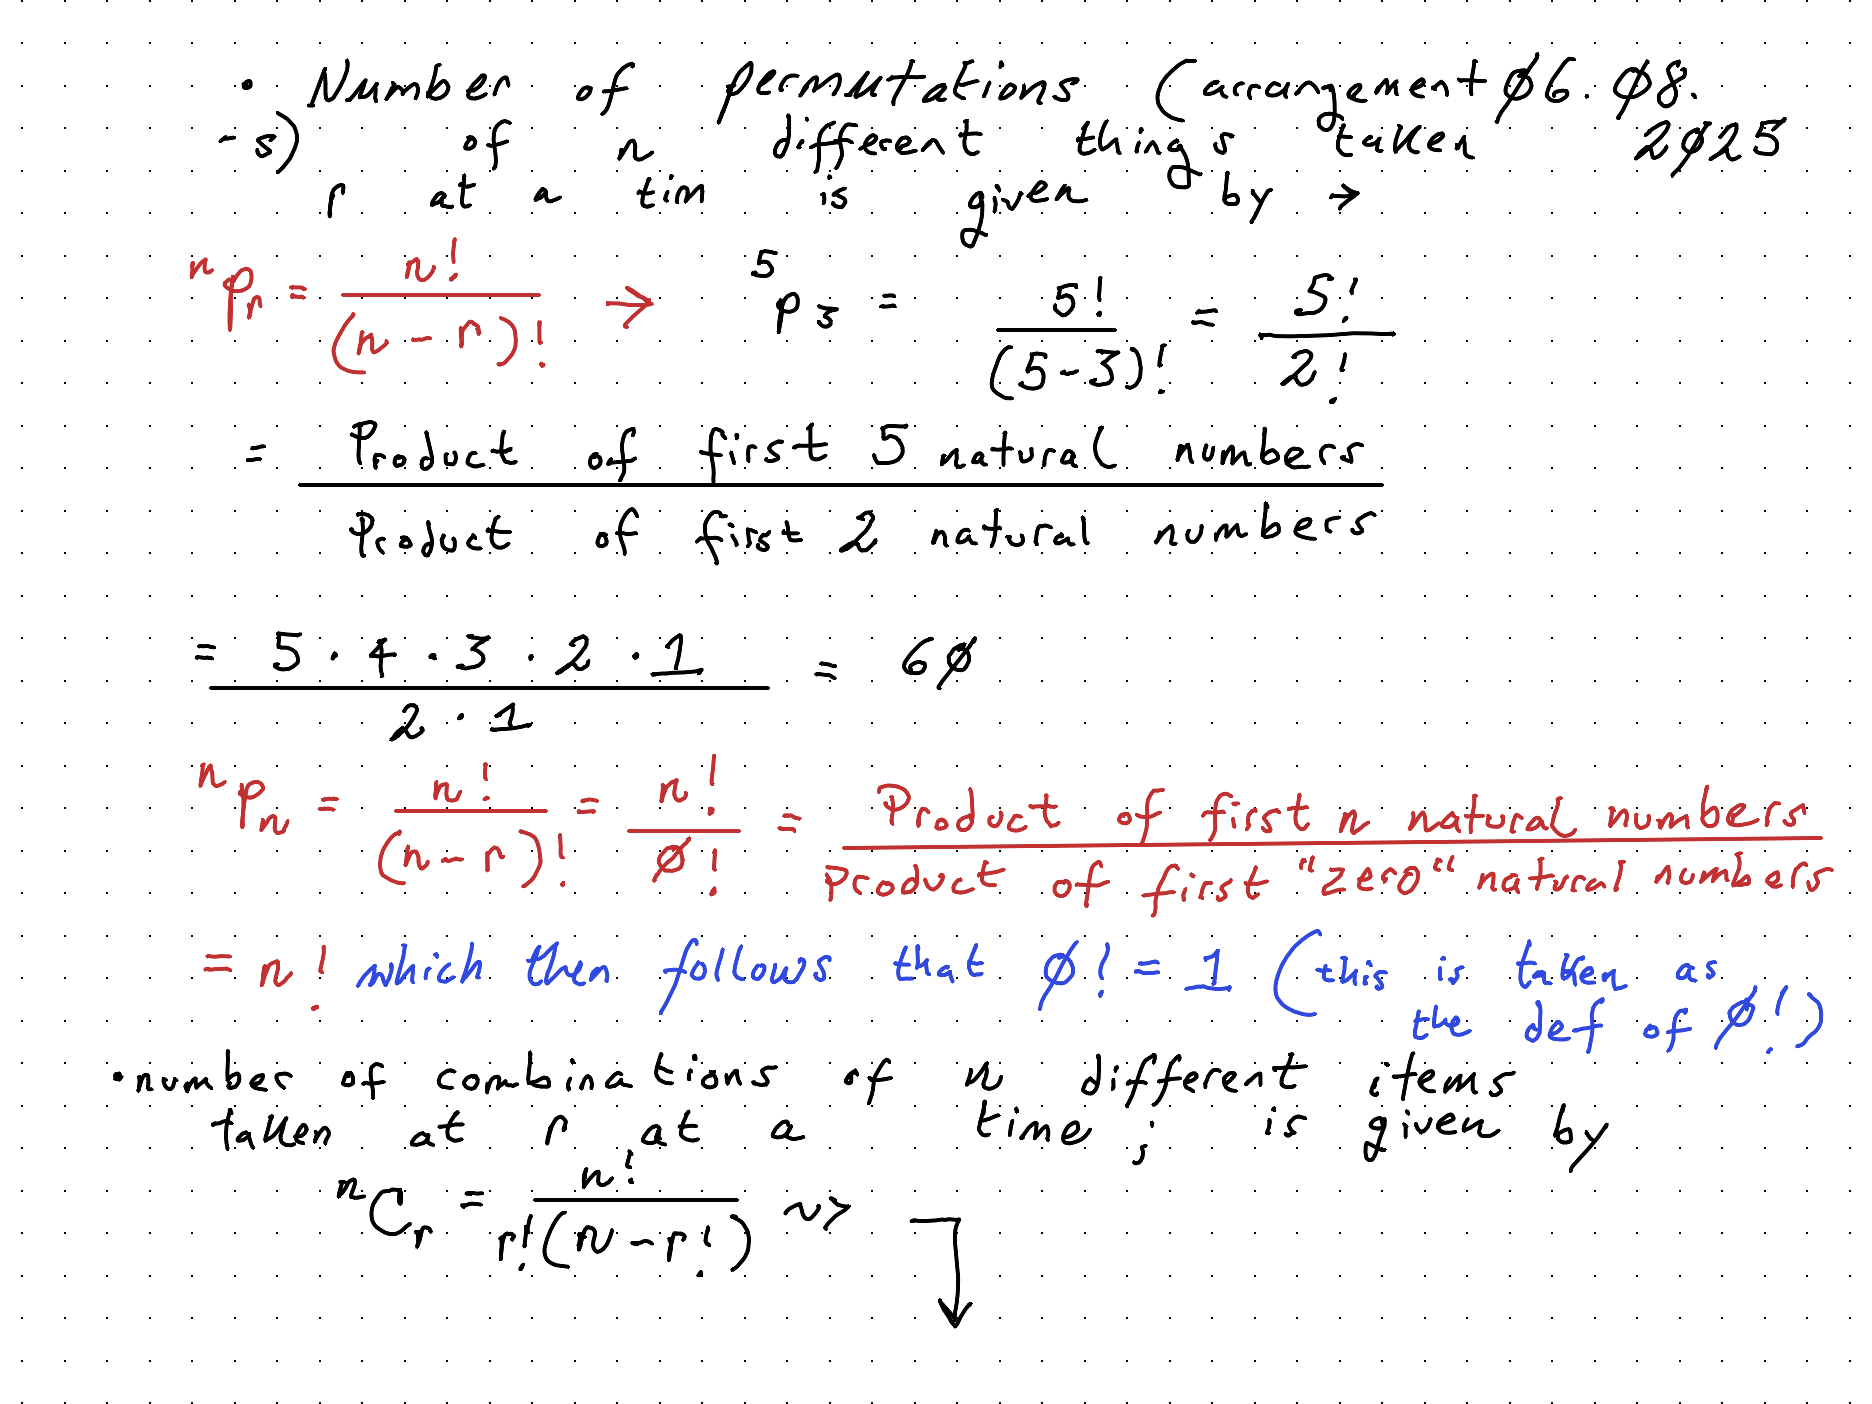 • Number of permutations (arrangement Ø6.Ø8.
-s) of n different things taken 2Ø25
r at a tim is given by →
ⁿPᵣ = n! / (n - r)! → ⁵P₃ = 5! / (5-3)! = 5! / 2!
= Product of first 5 natural numbers
Product of first 2 natural numbers
= 5 · 4 · 3 · 2 · 1 / 2 · 1 = 6Ø
ⁿPₙ = n! / (n - r)! = n! / Ø! = Product of first n natural numbers
Product of first "zero" natural numbers
= n! which then follows that Ø! = 1 (this is taken as
the def of Ø!)
• number of combinations of n different items
taken at r at a time, is given by
ⁿCᵣ = n! / r!(n - r!) ~>